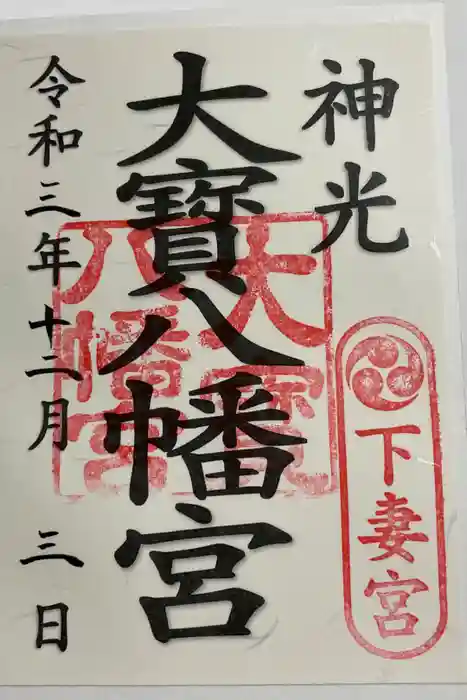 神光
下妻宮
大寳八幡宮
大寳八幡宮
令和三年十二月 三日